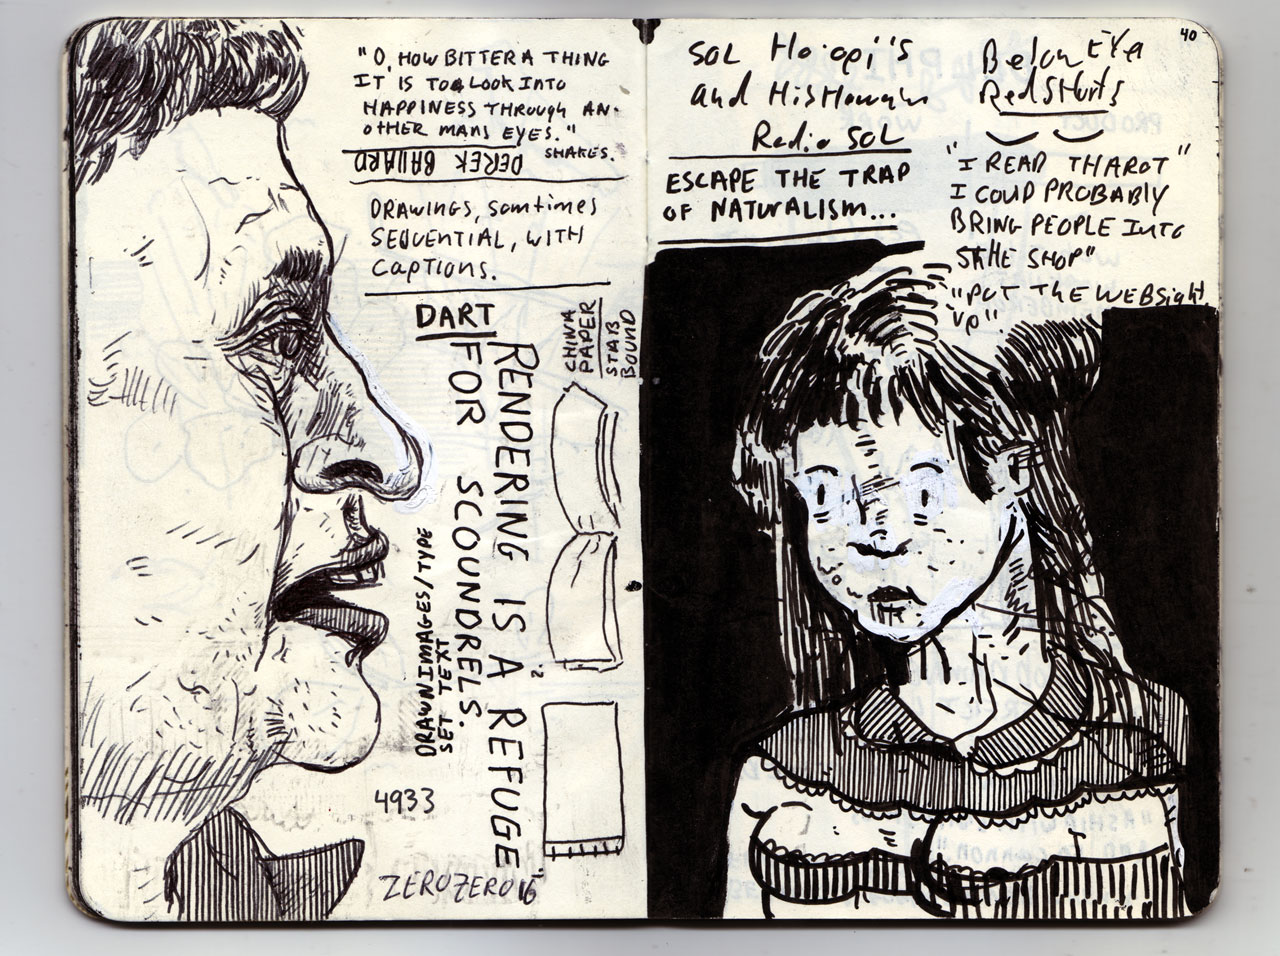 "O, HOW BITTER A THING
IT IS TO LOOK INTO
HAPPINESS THROUGH AN-
OTHER MANS EYES."
SHAKES.
DEREK BALLARD
DRAWINGS, SOMTIMES
SEQUENTIAL, WITH
CAPTIONS.
DART
RENDERING IS A REFUGE
FOR SCOUNDRELS.
CHINA
PAPER
STAB
BOUND
DRAWN IMAGES/TYPE
SET TEXT
2.
4933
ZEROZERO16
40
SOL Ho'opi'i's
and His
Radio SOL
ESCAPE THE TRAP
OF NATURALISM...
Below Eye
Red Shorts
"I READ THAROT"
I COULD PROBABLY
BRING PEOPLE INTO
THE SHOP"
"PUT THE WEBSIGHT
UP".